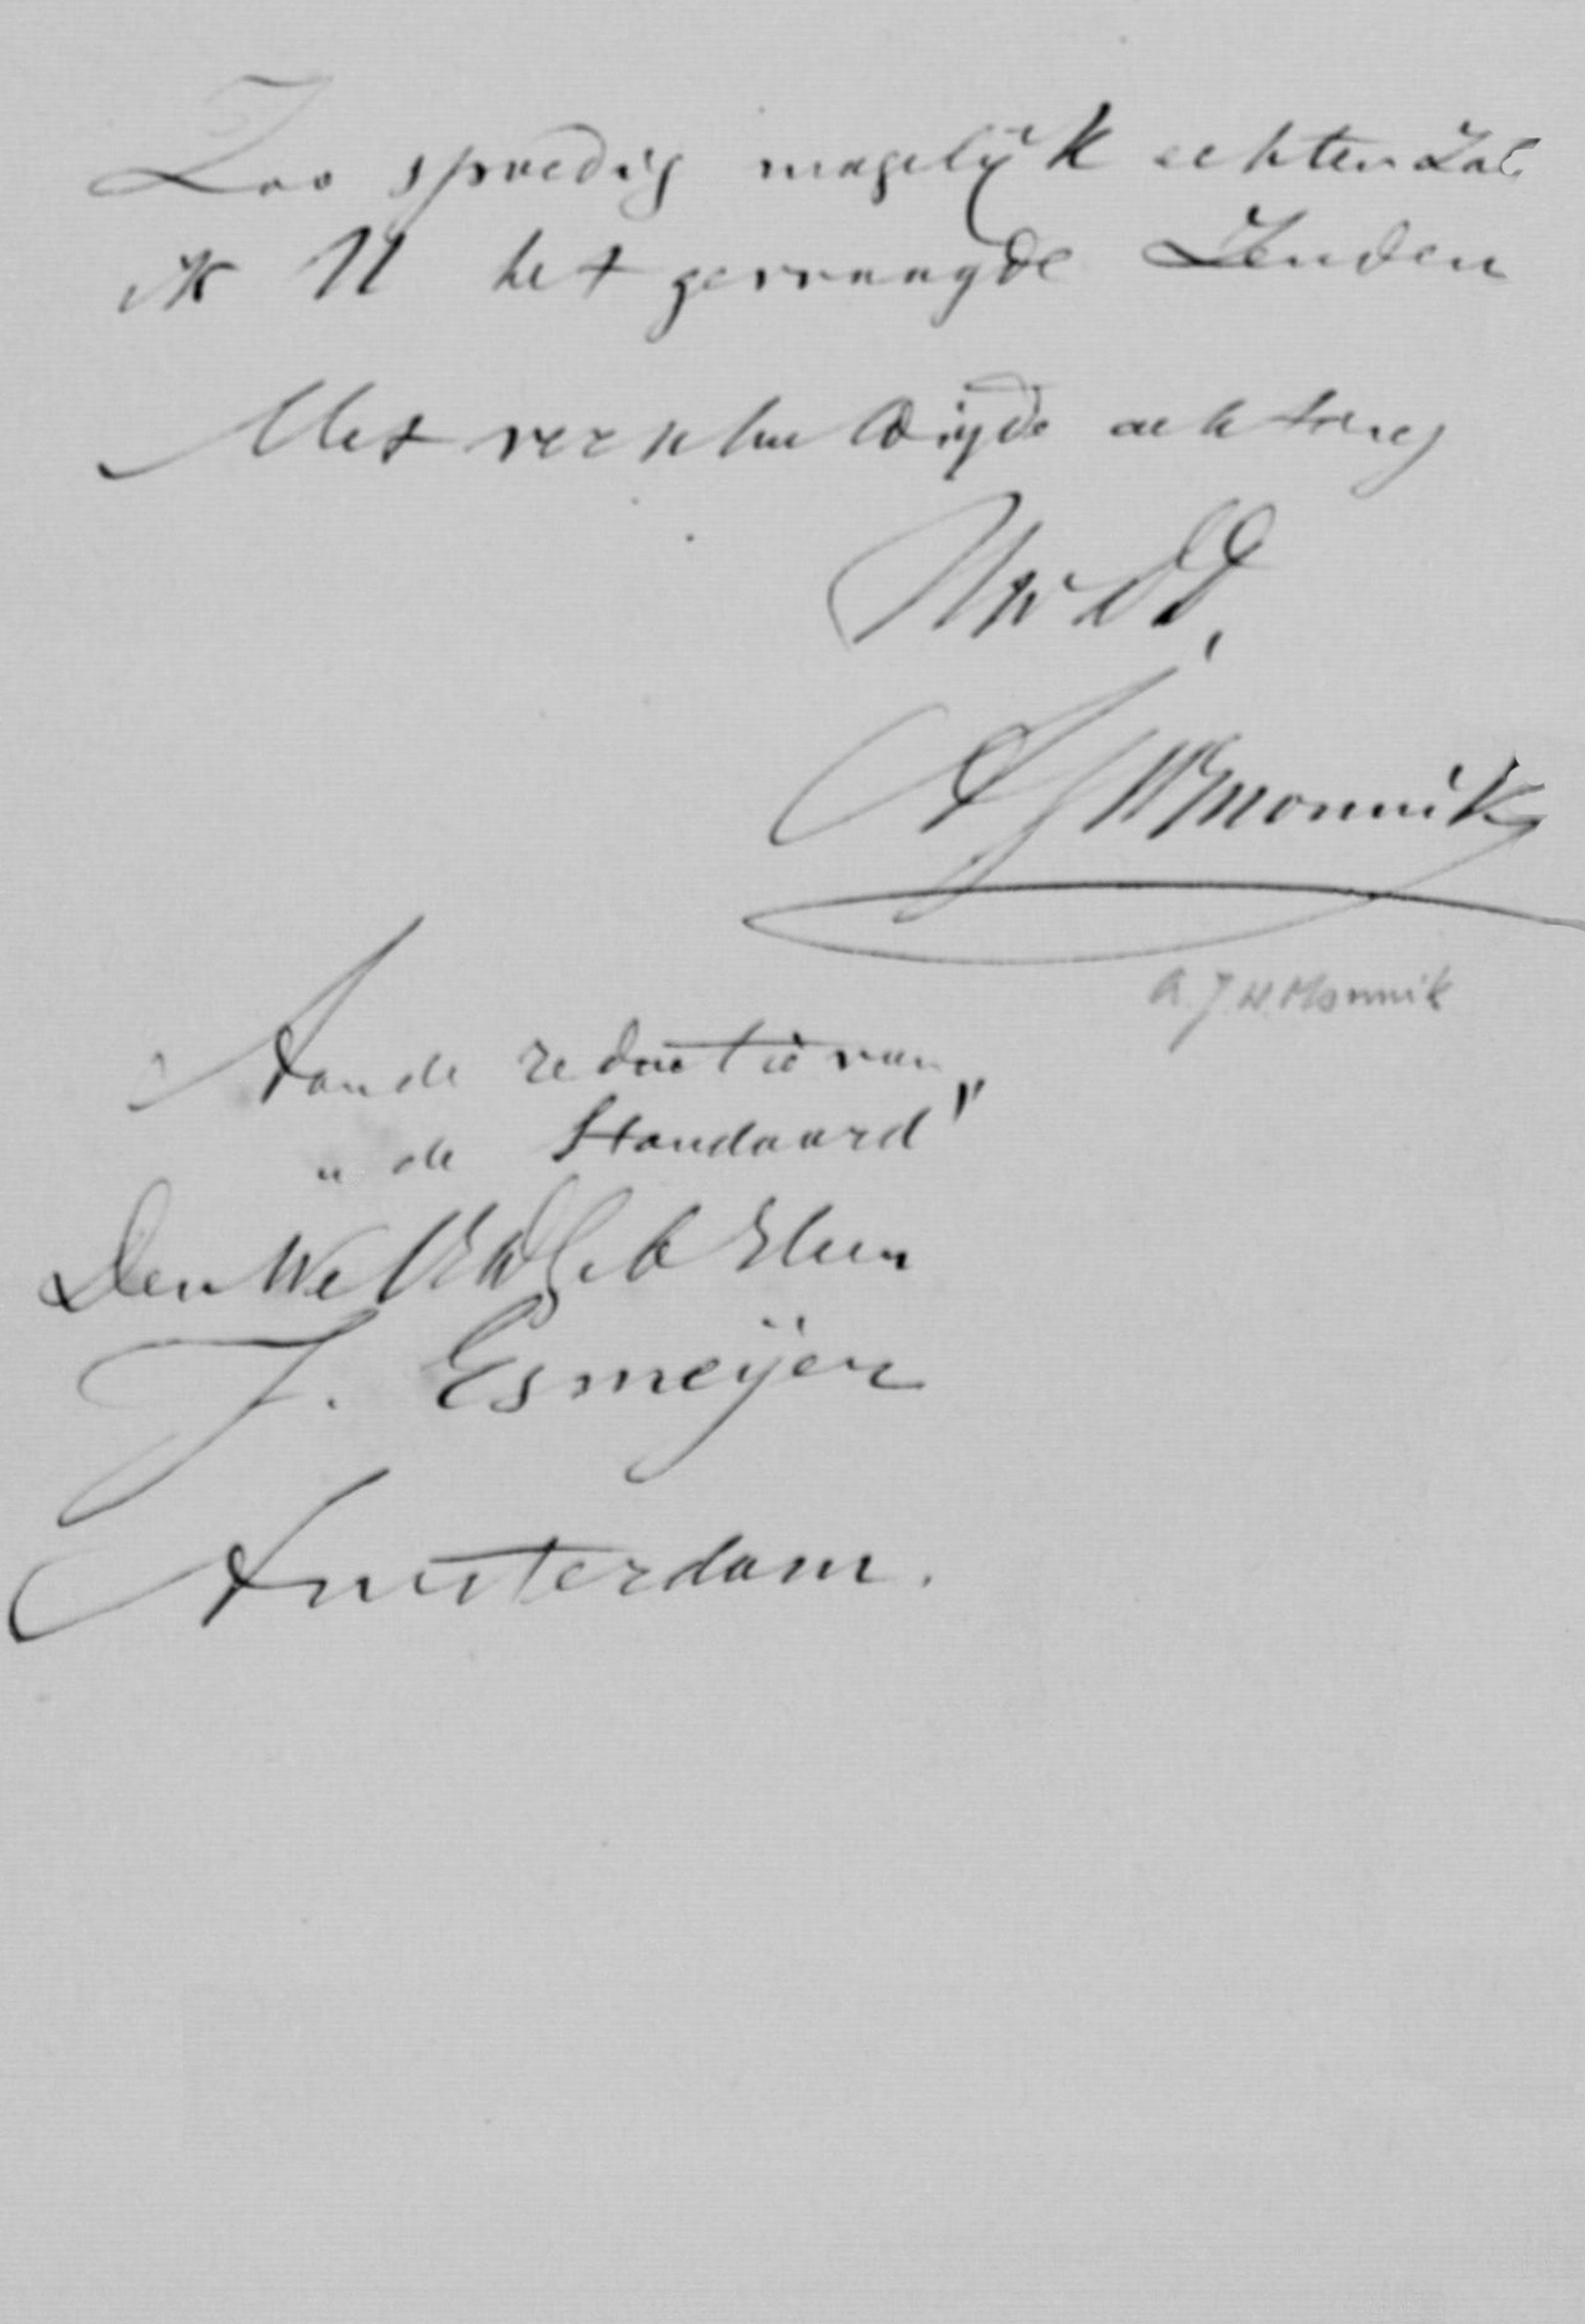 Zoo spoedig mogelijk echter zal
ik U het gevraagde zenden
Met verschuldigde achting
Uw DD,
A J W Monnik
A. J. W. Monnik
Aan de redactie van
"de Standaard"
Den WelEd Geb Heer
J. Esmeijer
Amsterdam.